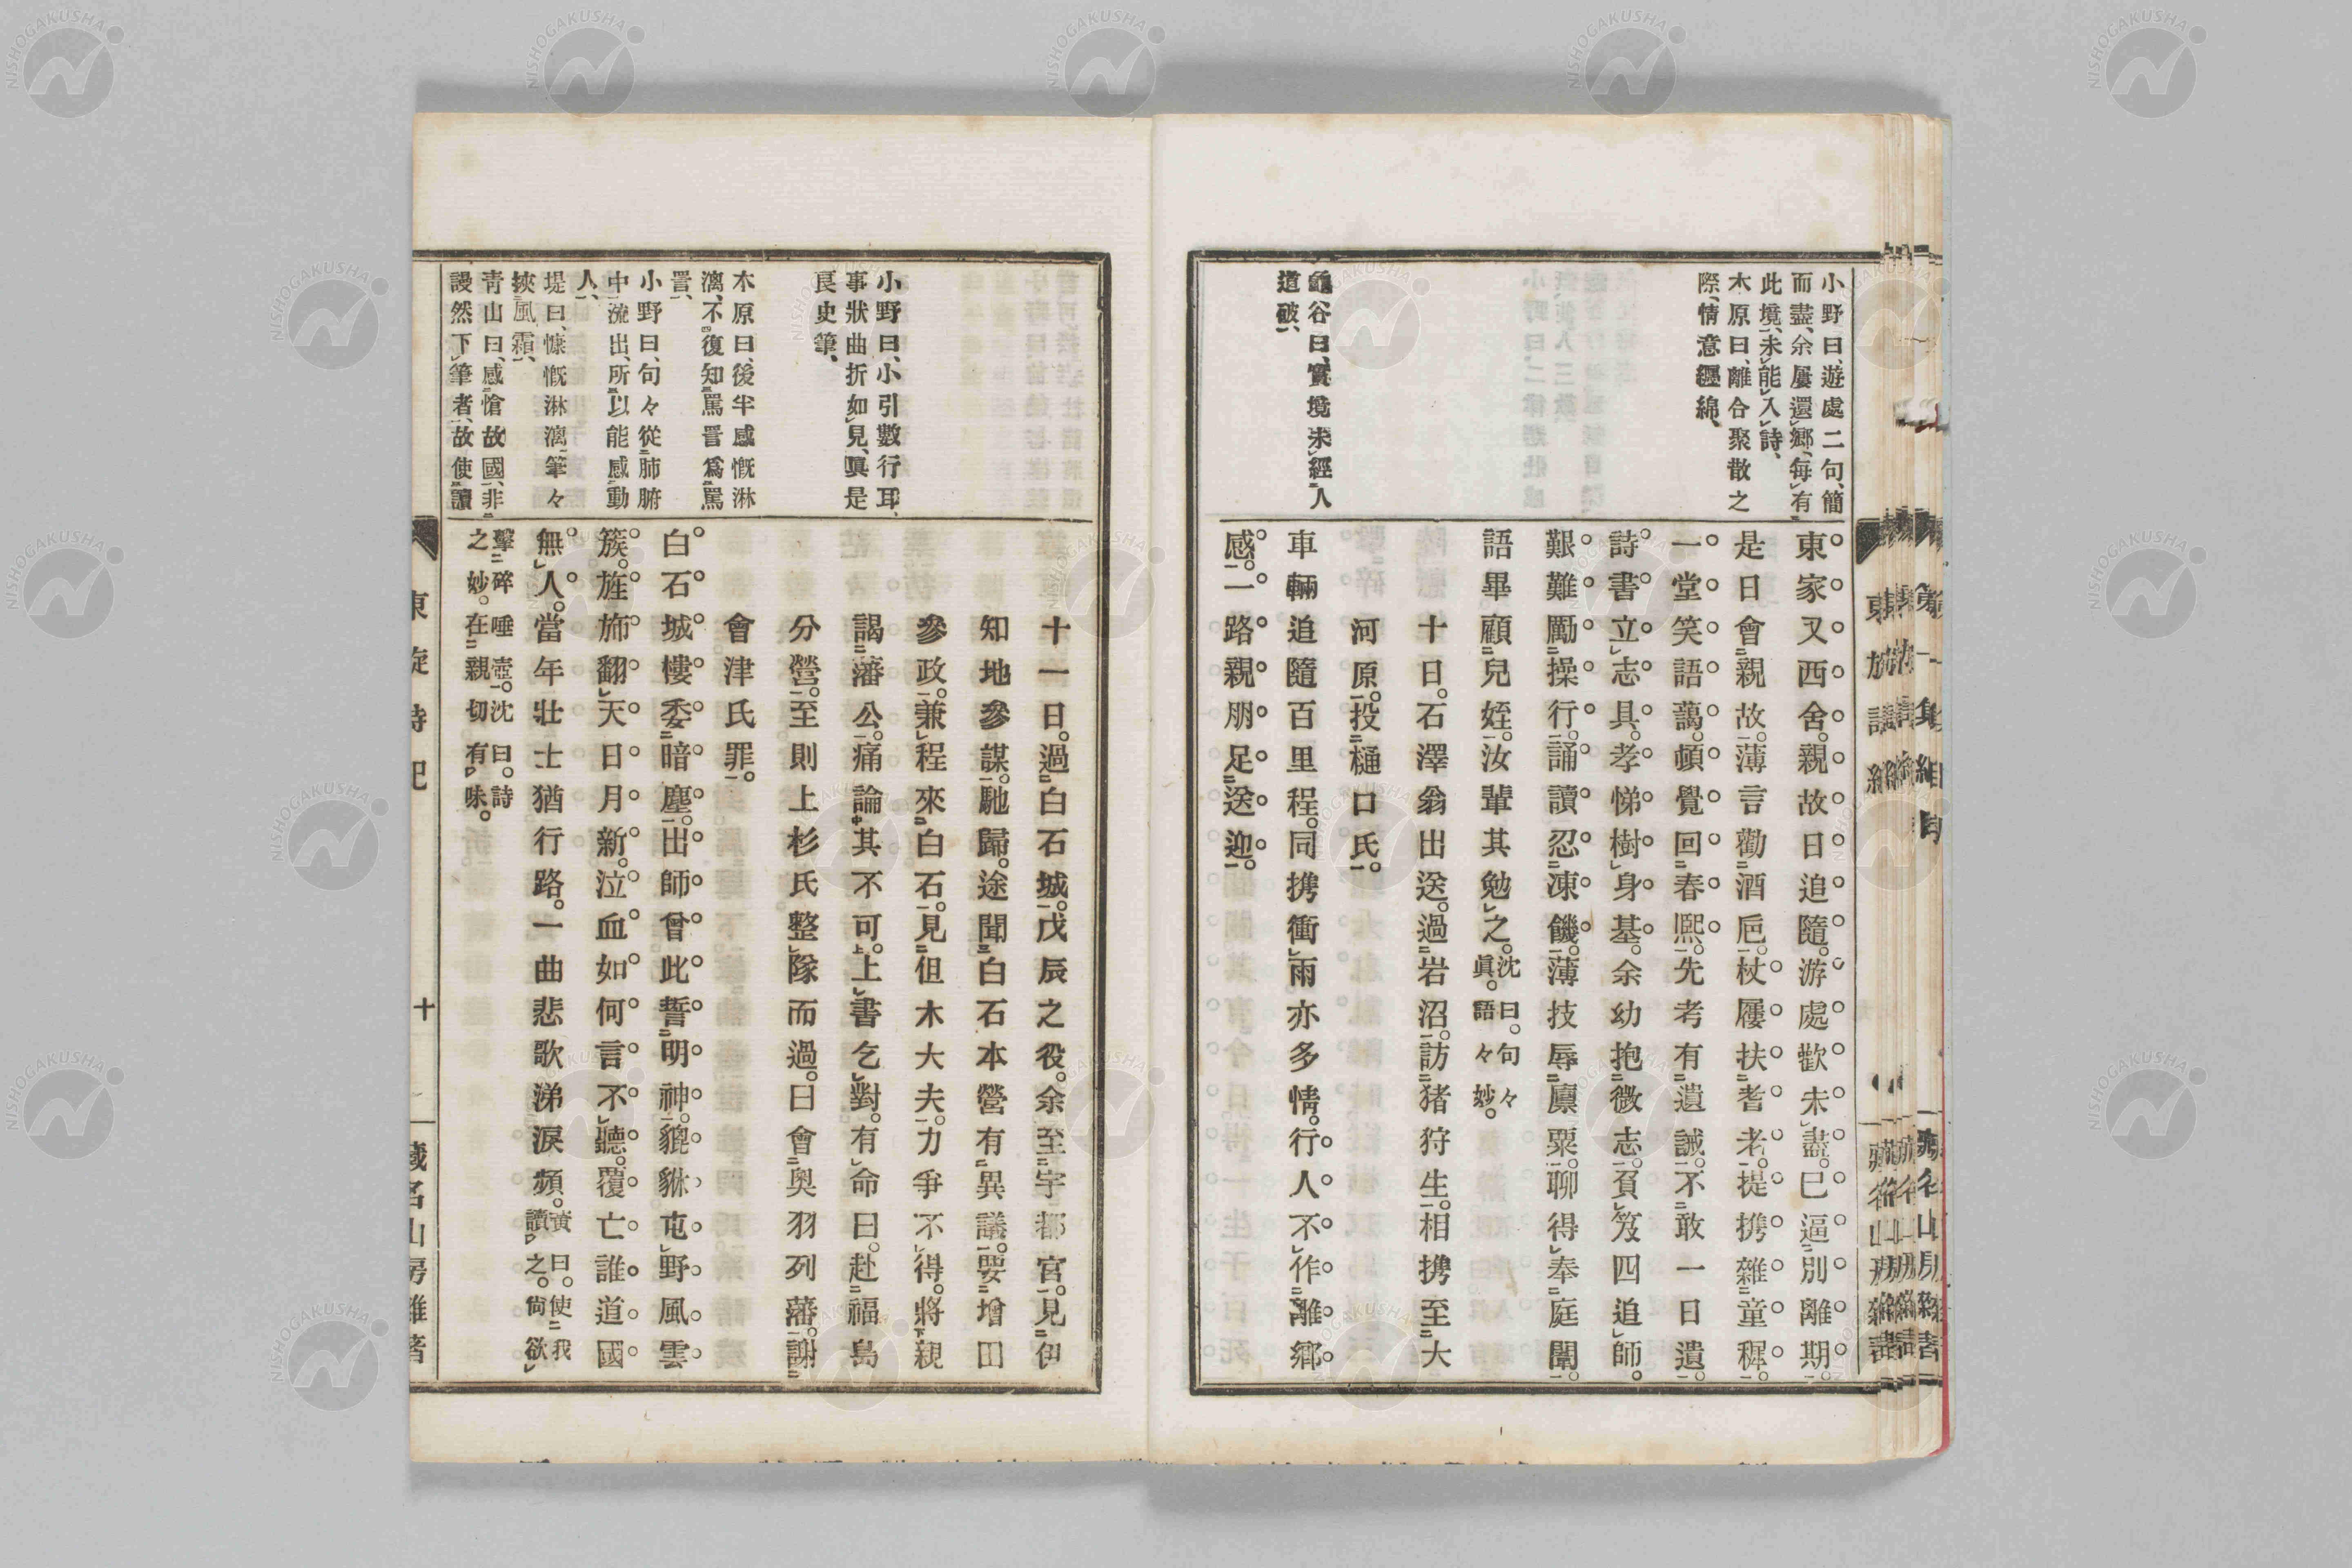 小野曰、遊處二句、簡
而盡、余屢還鄉、每有
此境、未能入詩、
木原曰、離合聚散之
際、情意纒綿、
龜谷曰、實境未經人
道破、
東家又西舍。親故日追隨。游處歡未盡。已逼別離期。
是日會親故。薄言勸酒巵。杖屨扶耆老。提携雜童穉。
一堂笑語藹。頓覺回春熙。先考有遺誡。不敢一日遺。
詩書立志具。孝悌樹身基。余幼抱微志。負笈四追師。
艱難勵操行。誦讀忍凍饑。薄技辱廩粟。聊得奉庭闈。
語畢顧兒姪。汝輩其勉之。沈曰。句々眞。語々妙。
十日。石澤翁出送。過岩沼。訪猪狩生。相携至大
河原。投樋口氏。
車輛追隨百里程。同携衝雨亦多情。行人不作離鄉
感。一路親朋足送迎。
小野曰、小引數行耳、
事狀曲折如見、眞是
良史筆、
木原曰、後半感慨淋
漓、不復知罵詈爲罵
詈、
小野曰、句々從肺腑
中流出、所以能感動
人、
堤曰、慷慨淋漓、筆々
挾風霜、
青山曰、感愴故國、非
謾然下筆者、故使讀
十一日。過白石城。戊辰之役。余至宇都宮。見伊
知地參謀。馳歸。途聞白石本營有異議。要增田
參政。兼程來白石。見但木大夫。力爭不得。將親
謁藩公。痛論其不可。上書乞對。有命曰。赴福島
分營。至則上杉氏整隊而過。曰會奧羽列藩。謝
會津氏罪。
白石城樓委暗塵。出師曾此誓明神。貔貅屯野風雲
簇。旌旆翻天日月新。泣血如何言不聽。覆亡誰道國
無人。當年壯士猶行路。一曲悲歌涕淚頻。黃曰。使我讀之。尙欲
擊碎唾壺。沈曰。詩之妙。在親切有味。
十